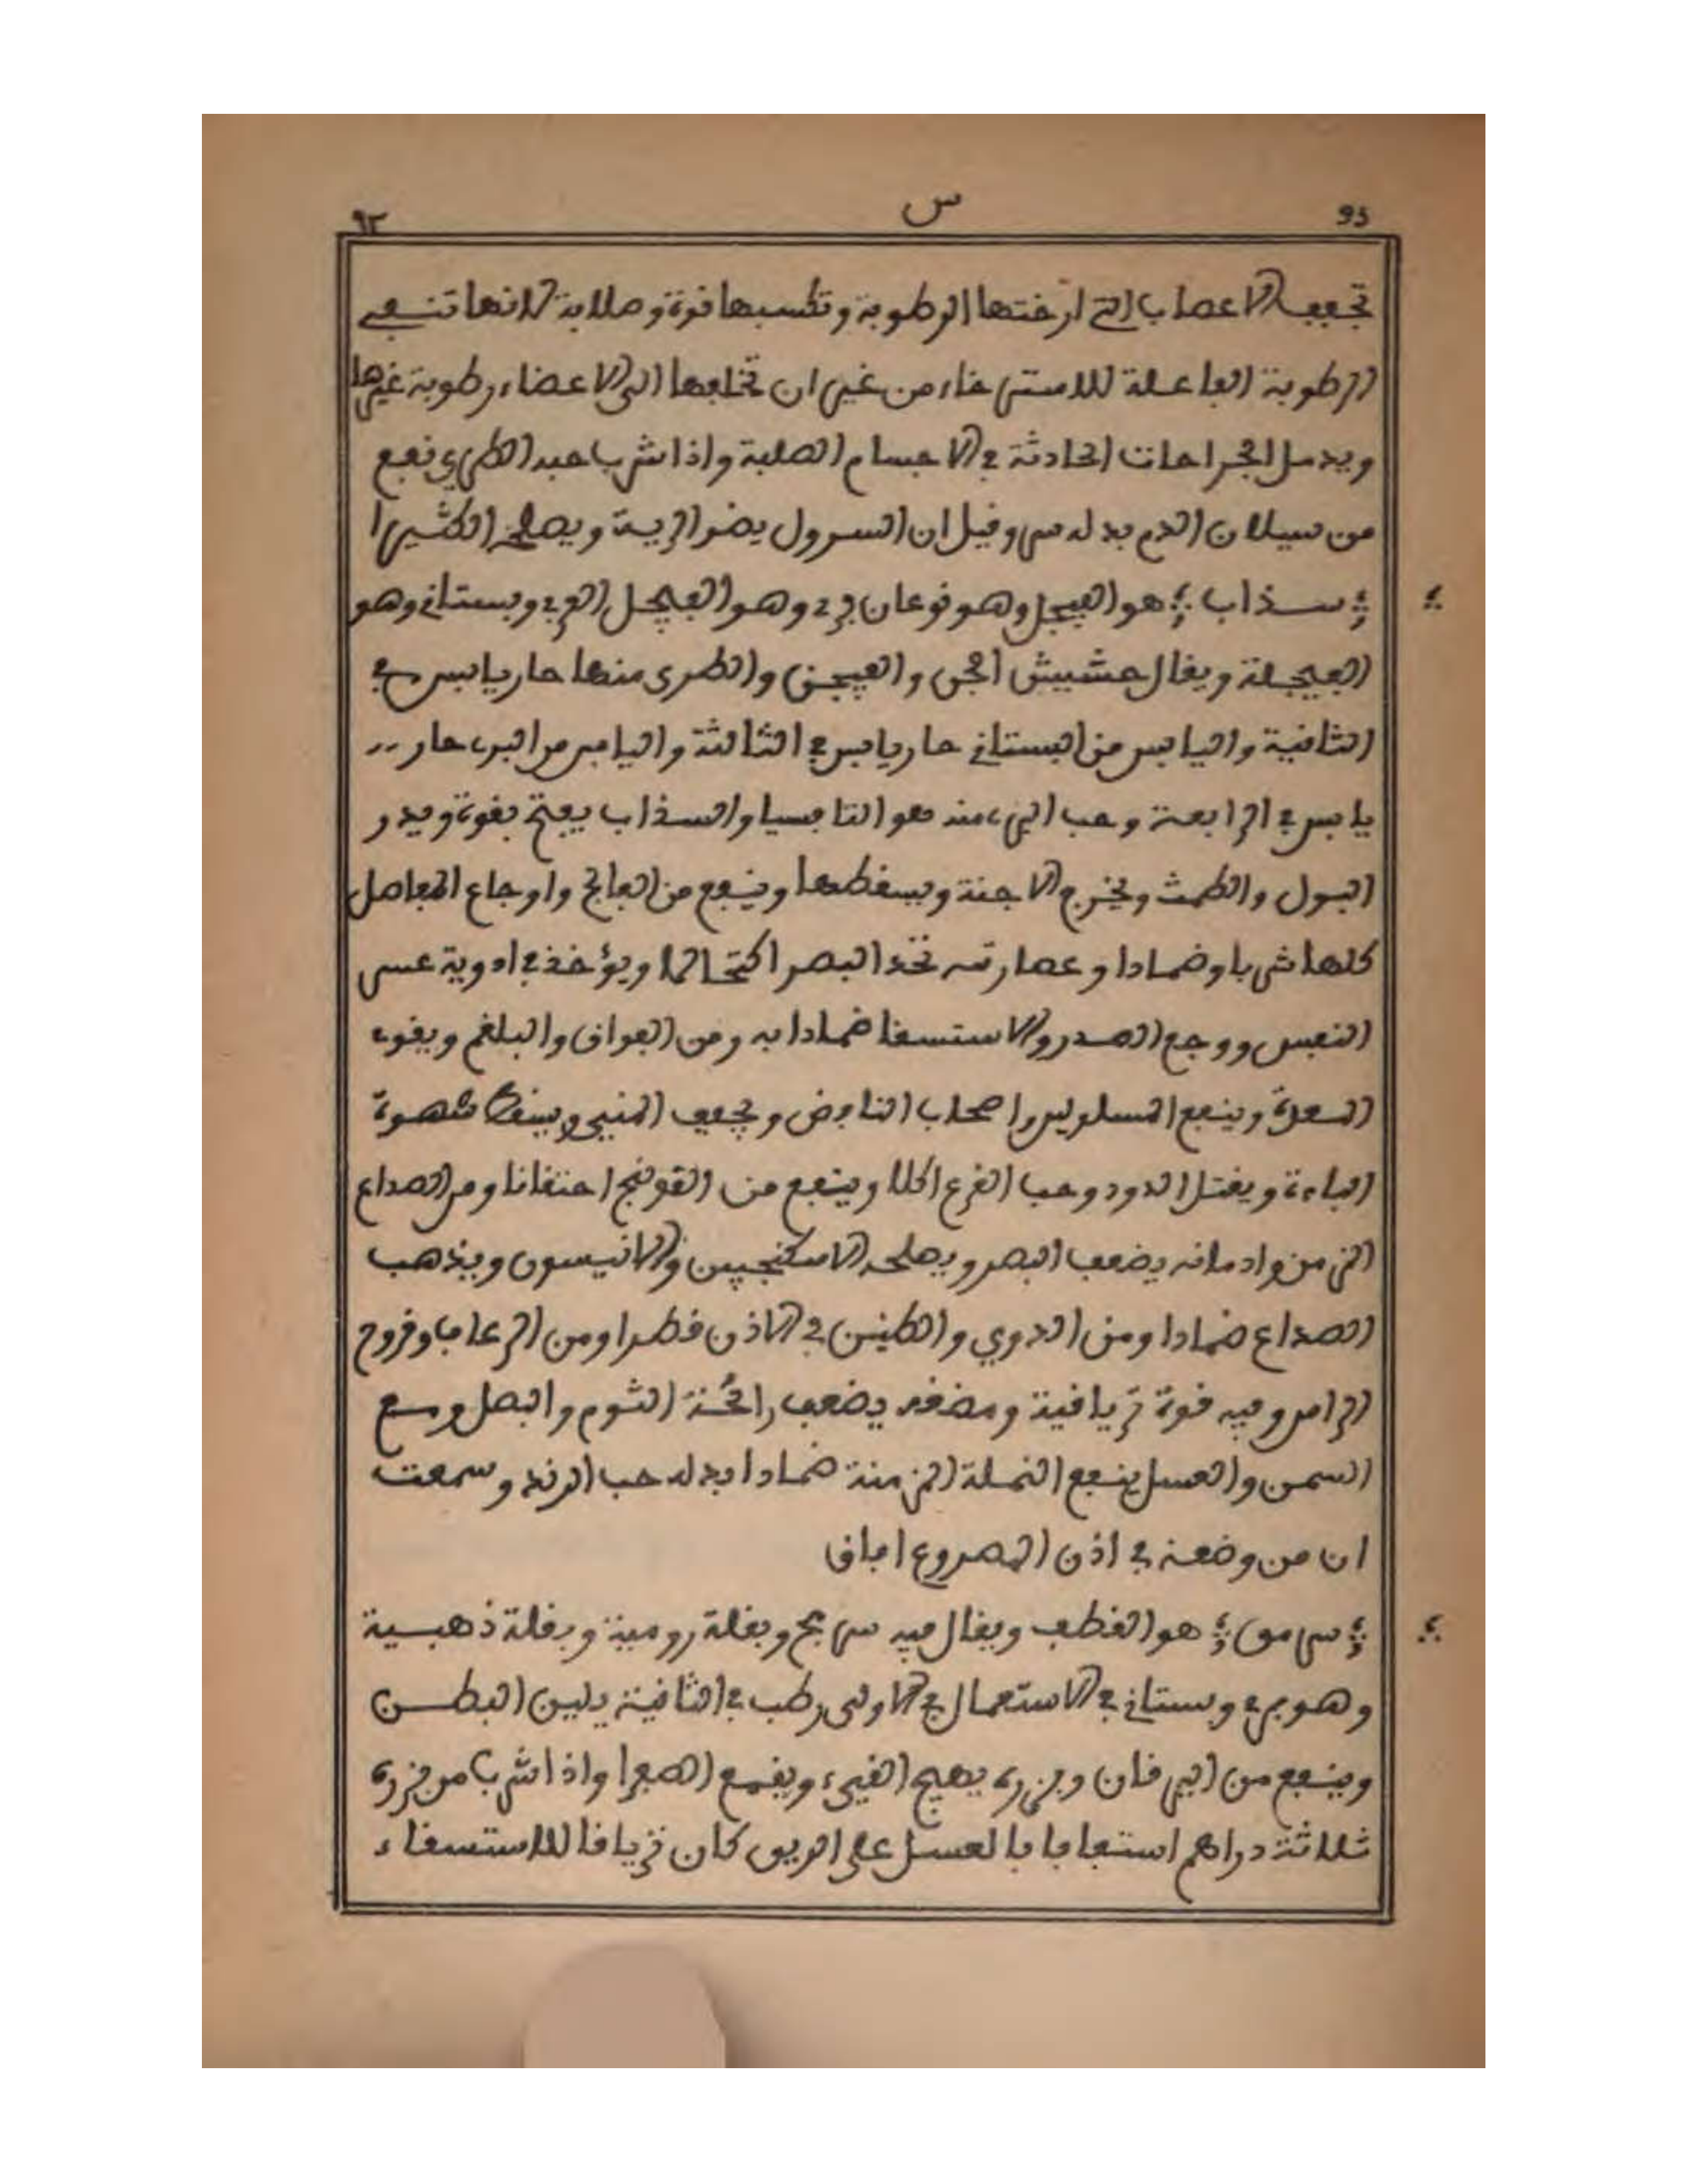 ٩٣ س 93
تجفف الاعصاب التي ارختها الرطوبة وتكسبها قوة وصلابة لانها تنفي
الرطوبة الفاعلة للاسترخاء من غير ان تجلبها الى الاعضاء رطوبة غيرها
ويدمل الجراحات الحادثة في الاجسام الصلبة واذا شرب حبه الطري نفع
من سيلان الدم بدله س وقيل ان السرول يضر الرية ويصلحه الكثيرا
سذاب هو الفيجل وهو نوعان بري وهو الفيجل البري وبستاني وهو
الفيجلة ويقال حشيش الجن والفيجن والطري منها حار يابس في
الثانية واليابس من البستاني حار يابس في الثالثة واليابس من البري حار
يابس في الرابعة وحب البري منه هو التافسيا والسذاب يفتح بقوة ويدر
البول والطمث ويخرج الاجنة ويسقطها وينفع من الفالج واوجاع المفاصل
كلها شربا وضمادا وعصارته تحد البصر اكتحالا ويؤخذ في ادوية عسر
النفس ووجع الصدر والاستسقا ضمادا به ومن الفواق والبلغم ويقوي
المعدة وينفع المسلولين واصحاب النافض ويجفف المني ويسقط شهوة
الباءة ويقتل الدود وحب القرع اكلا وينفع من القولنج احتقانا ومن الصداع
المزمن وادمانه يضعف البصر ويصلحه الاسكنجبين والانيسون ويذهب
الصداع ضمادا ومن الدوي والطنين في الاذن قطرا ومن الرعاف وقروح
الراس وفيه قوة ترياقية ومضغه يضعف رائحة الثوم والبصل ومع
السمن والعسل ينفع النملة المزمنة ضمادا بدله حب الرند وسمعت
ان من وضعه في اذن المصروع افاق
سرمق هو القطف ويقال فيه سرمج وبقلة رومية وبقلة ذهبية
وهو بري وبستاني في الاستعمال في الاولى رطب في الثانية يلين البطن
وينفع من اليرقان وبزره يهيج القيء ويقمع الصفرا واذا شرب من بزره
ثلاثة دراهم استفافا بالعسل على الريق كان ترياقا للاستسقاء